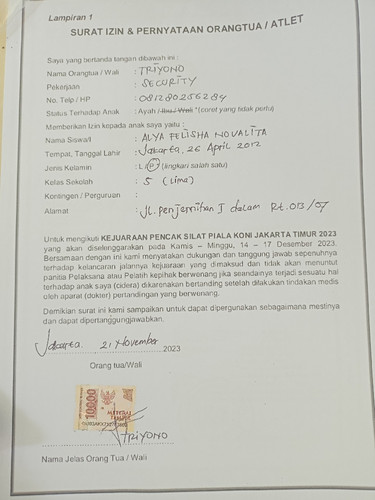 Lampiran 1
SURAT IZIN & PERNYATAAN ORANGTUA / ATLET
Saya yang bertanda tangan dibawah ini :
Nama Orangtua / Wali : TRIYONO
Pekerjaan : SECURITY
No. Telp / HP : 081280256284
Status Terhadap Anak : Ayah / Ibu / Wali *(coret yang tidak perlu)
Memberikan Izin kepada anak saya yaitu :
Nama Siswa/i : ALYA FELISHA NOVALITA
Tempat, Tanggal Lahir : Jakarta, 26 April 2012
Jenis Kelamin : L / P (lingkari salah satu)
Kelas Sekolah : 5 (Lima)
Kontingen / Perguruan :
Alamat : Jl. Penjernihan I dalam Rt.013/07
Untuk mengikuti KEJUARAAN PENCAK SILAT PIALA KONI JAKARTA TIMUR 2023
yang akan diselenggarakan pada Kamis – Minggu, 14 – 17 Desember 2023.
Bersamaan dengan ini kami menyatakan dukungan dan tanggung jawab sepenuhnya
terhadap kelancaran jalannya kejuaraan yang dimaksud dan tidak akan menuntut
panitia Pelaksana atau Pelatih kepihak berwenang jika seandainya terjadi sesuatu hal
terhadap anak saya (cidera) dikarenakan bertanding setelah dilakukan tindakan medis
oleh aparat (dokter) pertandingan yang berwenang.
Demikian surat ini kami sampaikan untuk dapat dipergunakan sebagaimana mestinya
dan dapat dipertanggungjawabkan.
Jakarta, 21 November 2023
Orang tua/Wali
10000
METERAI
TEMPEL
TRIYONO
Nama Jelas Orang Tua / Wali